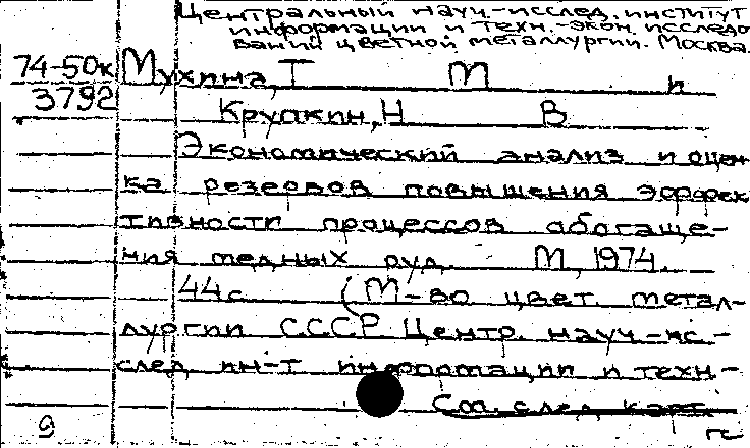 Центральный науч.-исслед. институт
информации и техн.-экон. исследо
ваний цветной металлургии. Москва.
74-50к Мухина, Т М и
3792
Круглкин, Н В
Экономический анализ и оцен
ка резервов повышения эффек
тивности процессов обогаще-
ния медных руд. М, 1974.
44с (М-во цвет. метал-
лургии СССР Центр. науч.-ис-
след ин-т информации и техн-
См. след. карт.
9 гс